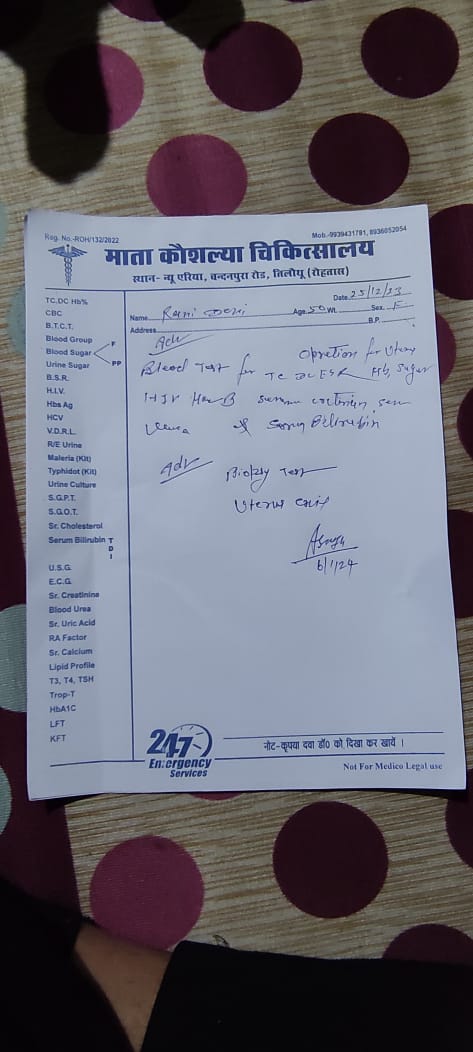 Reg. No.-ROH/132/2022
Mob.-9939431781, 8936052054
माता कौशल्या चिकित्सालय
स्थान- न्यू एरिया, चन्दनपुरा रोड, तिलौथू (रोहतास)
Date 25/12/23
Name Rani Devi Age 50 Wt. Sex. F
Address B.P.
TC.DC Hb%
CBC
B.T.C.T.
Blood Group
Blood Sugar F PP
Urine Sugar
B.S.R.
H.I.V.
Hbs Ag
HCV
V.D.R.L.
R/E Urine
Maleria (Kit)
Typhidot (Kit)
Urine Culture
S.G.P.T.
S.G.O.T.
Sr. Cholesterol
Serum Bilirubin T D I
U.S.G.
E.C.G.
Sr. Creatinine
Blood Urea
Sr. Uric Acid
RA Factor
Sr. Calcium
Lipid Profile
T3, T4, TSH
Trop-T
HbA1C
LFT
KFT
Adv
Opretion for
Blood Test for TC DC ESR Hb, Sugar
HIV
Bilirubin
Adv
Test
Uterus
6/1/24
24x7
Emergency
Services
नोट-कृपया दवा डॉ० को दिखा कर खायें ।
Not For Medico Legal use